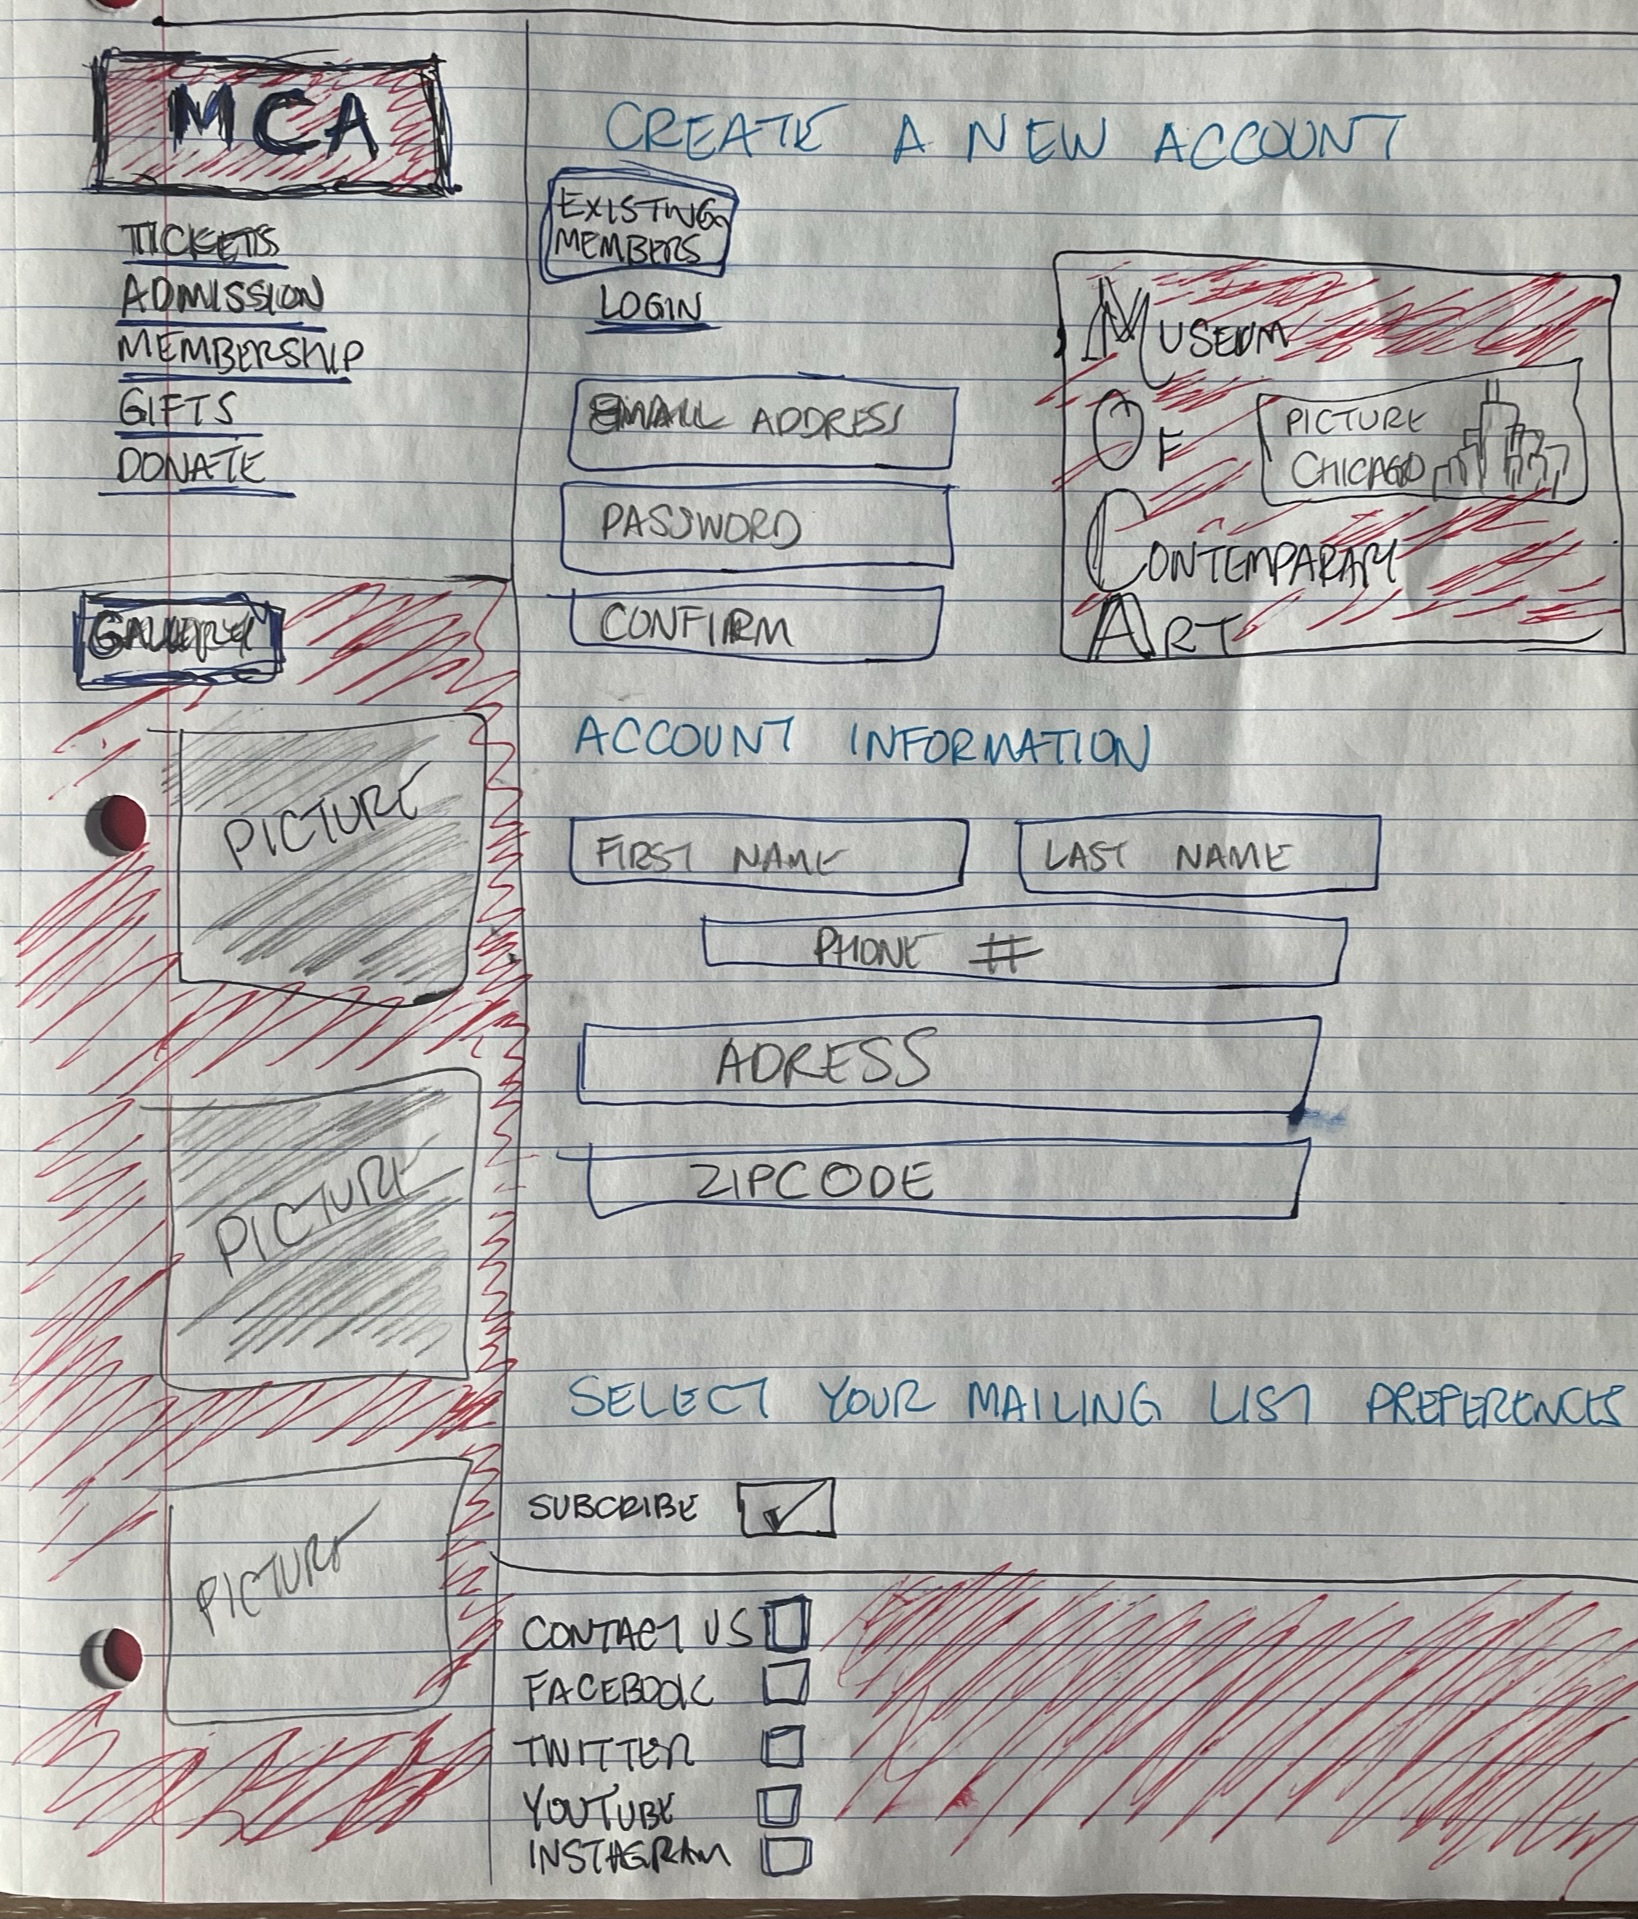 MCA
TICKETS
ADMISSION
MEMBERSHIP
GIFTS
DONATE
GALLERY
PICTURE
PICTURE
PICTURE
CREATE A NEW ACCOUNT
EXISTING
MEMBERS
LOGIN
EMAIL ADDRESS
PASSWORD
CONFIRM
MUSEUM
OF
PICTURE
CHICAGO
CONTEMPARARY
ART
ACCOUNT INFORMATION
FIRST NAME LAST NAME
PHONE #
ADRESS
ZIPCODE
SELECT YOUR MAILING LIST PREFERENCES
SUBCRIBE
CONTACT US
FACEBOOK
TWITTER
YOUTUBE
INSTAGRAM